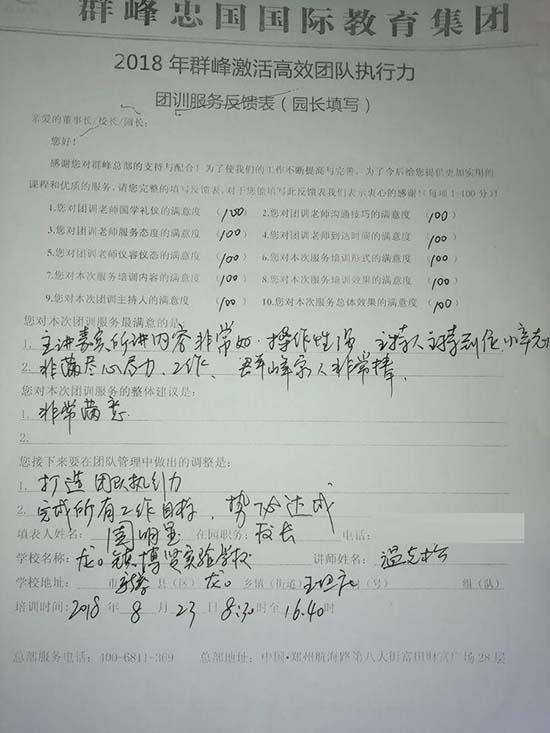 群峰忠国国际教育集团
2018年群峰激活高效团队执行力
团训服务反馈表（园长填写）
亲爱的董事长/校长/园长：
您好！
感谢您对群峰总部的支持与配合！为了使我们的工作不断提高与完善，为了今后给您提供更加实用的
课程和优质的服务，请您完整的填写反馈表，对于您能填写此反馈表我们表示衷心的感谢！（每项1-100分）
1.您对团训老师国学礼仪的满意度（100） 2.您对团训老师沟通技巧的满意度（100）
3.您对团训老师服务态度的满意度（100） 4.您对团训老师到达时间的满意度（100）
5.您对团训老师仪容仪态的满意度（100） 6.您对本次服务培训形式的满意度（100）
7.您对本次服务培训内容的满意度（100） 8.您对本次服务培训效果的满意度（100）
9.您对本次团训主持人的满意度（100） 10.您对本次服务总体效果的满意度（100）
您对本次团训服务最满意的是
1. 主讲嘉宾所讲内容非常好，操作性强 主持人主持到位
2. 非常尽心尽力，工作、群峰家人非常棒，
您对本次团训服务的整体建议是：
1. 非常满意
2.
您接下来要在团队管理中做出的调整是：
1. 打造团队执行力
2. 完成所有工作目标，势必达成
填表人姓名： 在园职务：校长 电话：
学校名称：龙口镇博贤实验学校 讲师姓名：
学校地址： 市 县（区）龙口 乡镇（街道） （号） 组（队）
培训时间：2018年8月23日8:30时至16:40时
总部服务电话：400-6811-369 总部地址：中国·郑州航海路第八大街富田财富广场28层